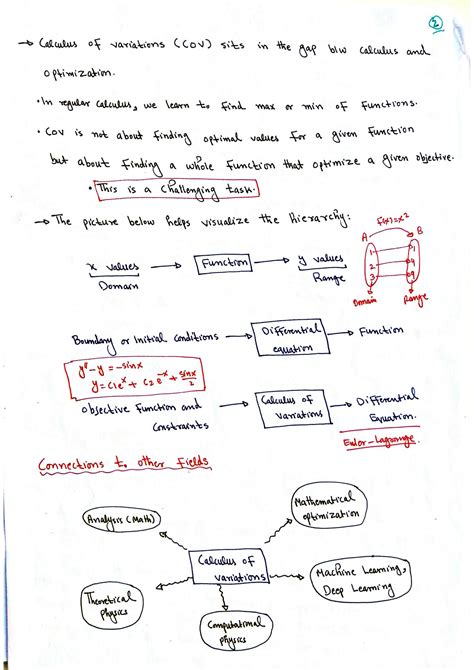 2
→ Calculus of variations (COV) sits in the gap b/w calculus and
optimization.
• In regular calculus, we learn to find max or min of functions.
• COV is not about finding optimal values for a given function
but about finding a whole function that optimize a given objective.
• This is a challenging task.
→ The picture below helps visualize the hierarchy:
f(x)=x²
A B
x values → Function → y values
Domain Range
1 1
2 4
3 9
Domain Range
Boundary or Initial conditions → Differential equation → Function
y''-y = -sinx
y = c1e^x + c2e^-x + sinx/2
Objective function and Constraints → Calculus of variations → Differential Equation.
Euler-Lagrange.
Connections to other fields
Analysis (Math)
Mathematical optimization
Calculus of variations
Theoretical physics
Machine Learning, Deep Learning
Computational physics